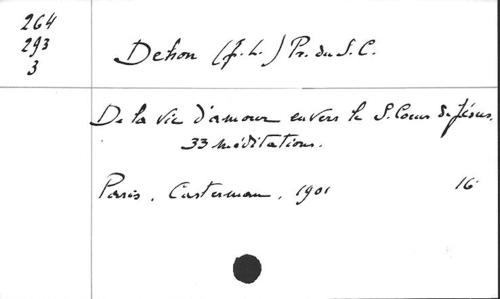 264
293
3
Dehon (J. L.) Pr. du S. C.
De la vie d'amour envers le S. Coeur de Jésus.
33 méditations.
Paris, Casterman, 1901 16